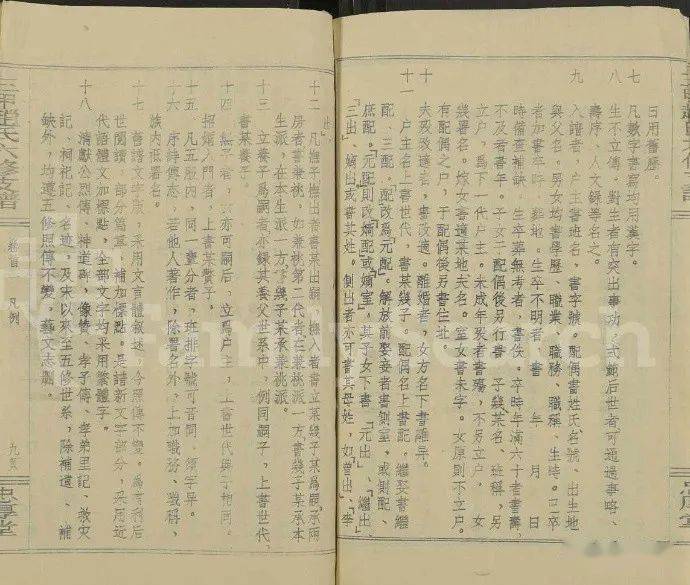 日用舊歷。
七 凡數字書寫均用漢字。
八 生不立傳。對生者有突出事功,式範后世者,可通過事略、
壽序、人文錄等名之。
九 入譜者、户主書班名,書字號。配偶書姓氏名號、出生地
與父名。男女均書學歷、職業、職務、職稱、生時。已卒
者加書卒時、葬地。生卒不明者 書 年 月 日
時備查補缺。生卒無考者,書佚。卒時年滿六十者書壽,
書享年。子女于配偶后另行書 子幾某名、班稱,另
立户,爲下一代户主。未成年殁者書殤,不另立户, 女
有署名。嫁女書適某地夫名。室女書未字。女原則不立户。
于配偶後另書住址
夫殁改適者,書改適。離婚者,女方名下書離异。
十一 户主名上書世代,書某幾子。配偶名上書配。繼娶書繼
配、三配,「配」改爲「元配」。解放前娶妾者書側室,或側配、
庶配。「元配」則改「嫡配」或「嫡室」。某子女下書「元出」、「繼出」、
「三出」、嫡出或書其姓。側出者亦可書其母姓,如「曾出」、「李
出」
十二 凡撫子撫出者書某出嗣,撫入者書立某幾子某爲嗣,承兩
房者書兼祧。如兼祧第二代者在兼祧派一方,書幾子某承本
生派,在本生派一方,書幾子某承兼祧派。
十三 立養子爲嗣者亦録其養父世系中,例同嗣子,上書世代、
書某養子。
十四 撫子者,亦可嗣后,立爲户主,上書世代與子相同。
招婿入門者,上書某贅子。
十五 凡五服内,同一輩分者,班排字號可音同,須字异。
十六 序詩傳志,若他人著作,除署名外,上加職務、職稱,
族内祇署名。
十七 舊譜文字版,采用文言體叙述,今照傳不變。爲有利后
世閲讀,部分篇章,補加標點。是譜新文字部分,采用近
代語體文加標點,全部文字均采用繁體字。
十八 清獻公烈傳、神道碑、像贊、孝子傳、孝弟里記、救灾
記、祠祀記、名迹,及宋以來至五修世系,除補遺、補
缺外,均遵五修照傳不變,藝文志删。
卷首 凡例
九
忠厚堂